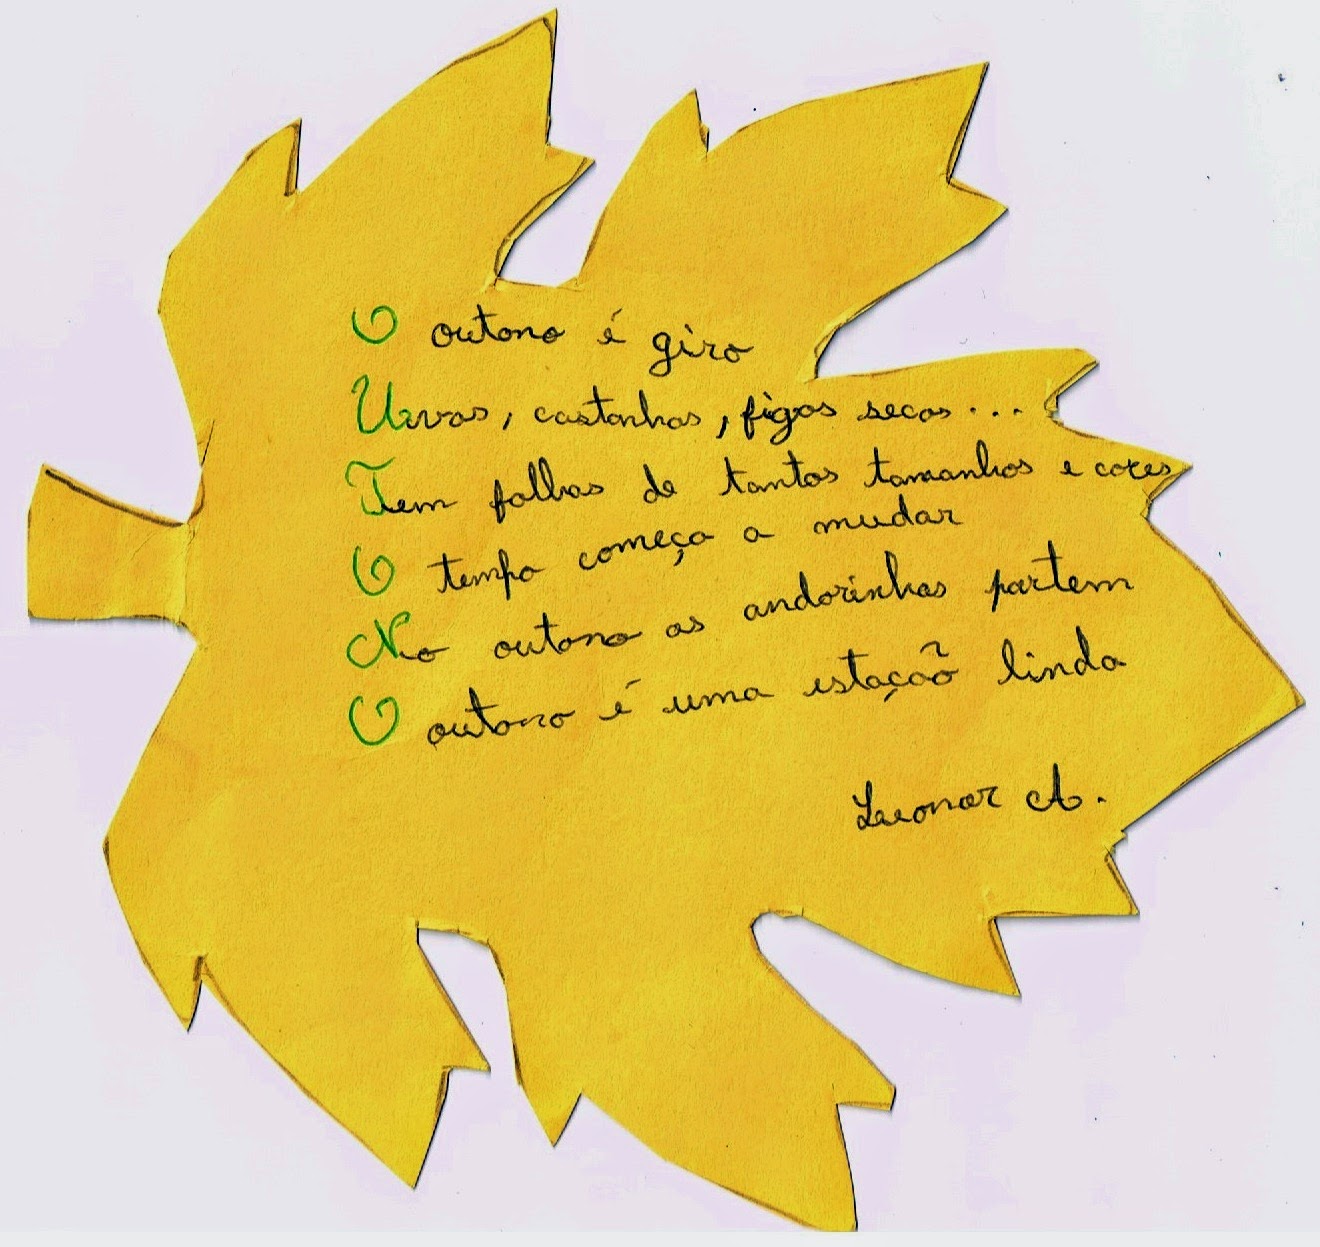 O outono é giro
Uvas, castanhas, figos secos...
Tem folhas de tantos tamanhos e cores
O tempo começa a mudar
No outono as andorinhas partem
O outono é uma estação linda
Leonor A.